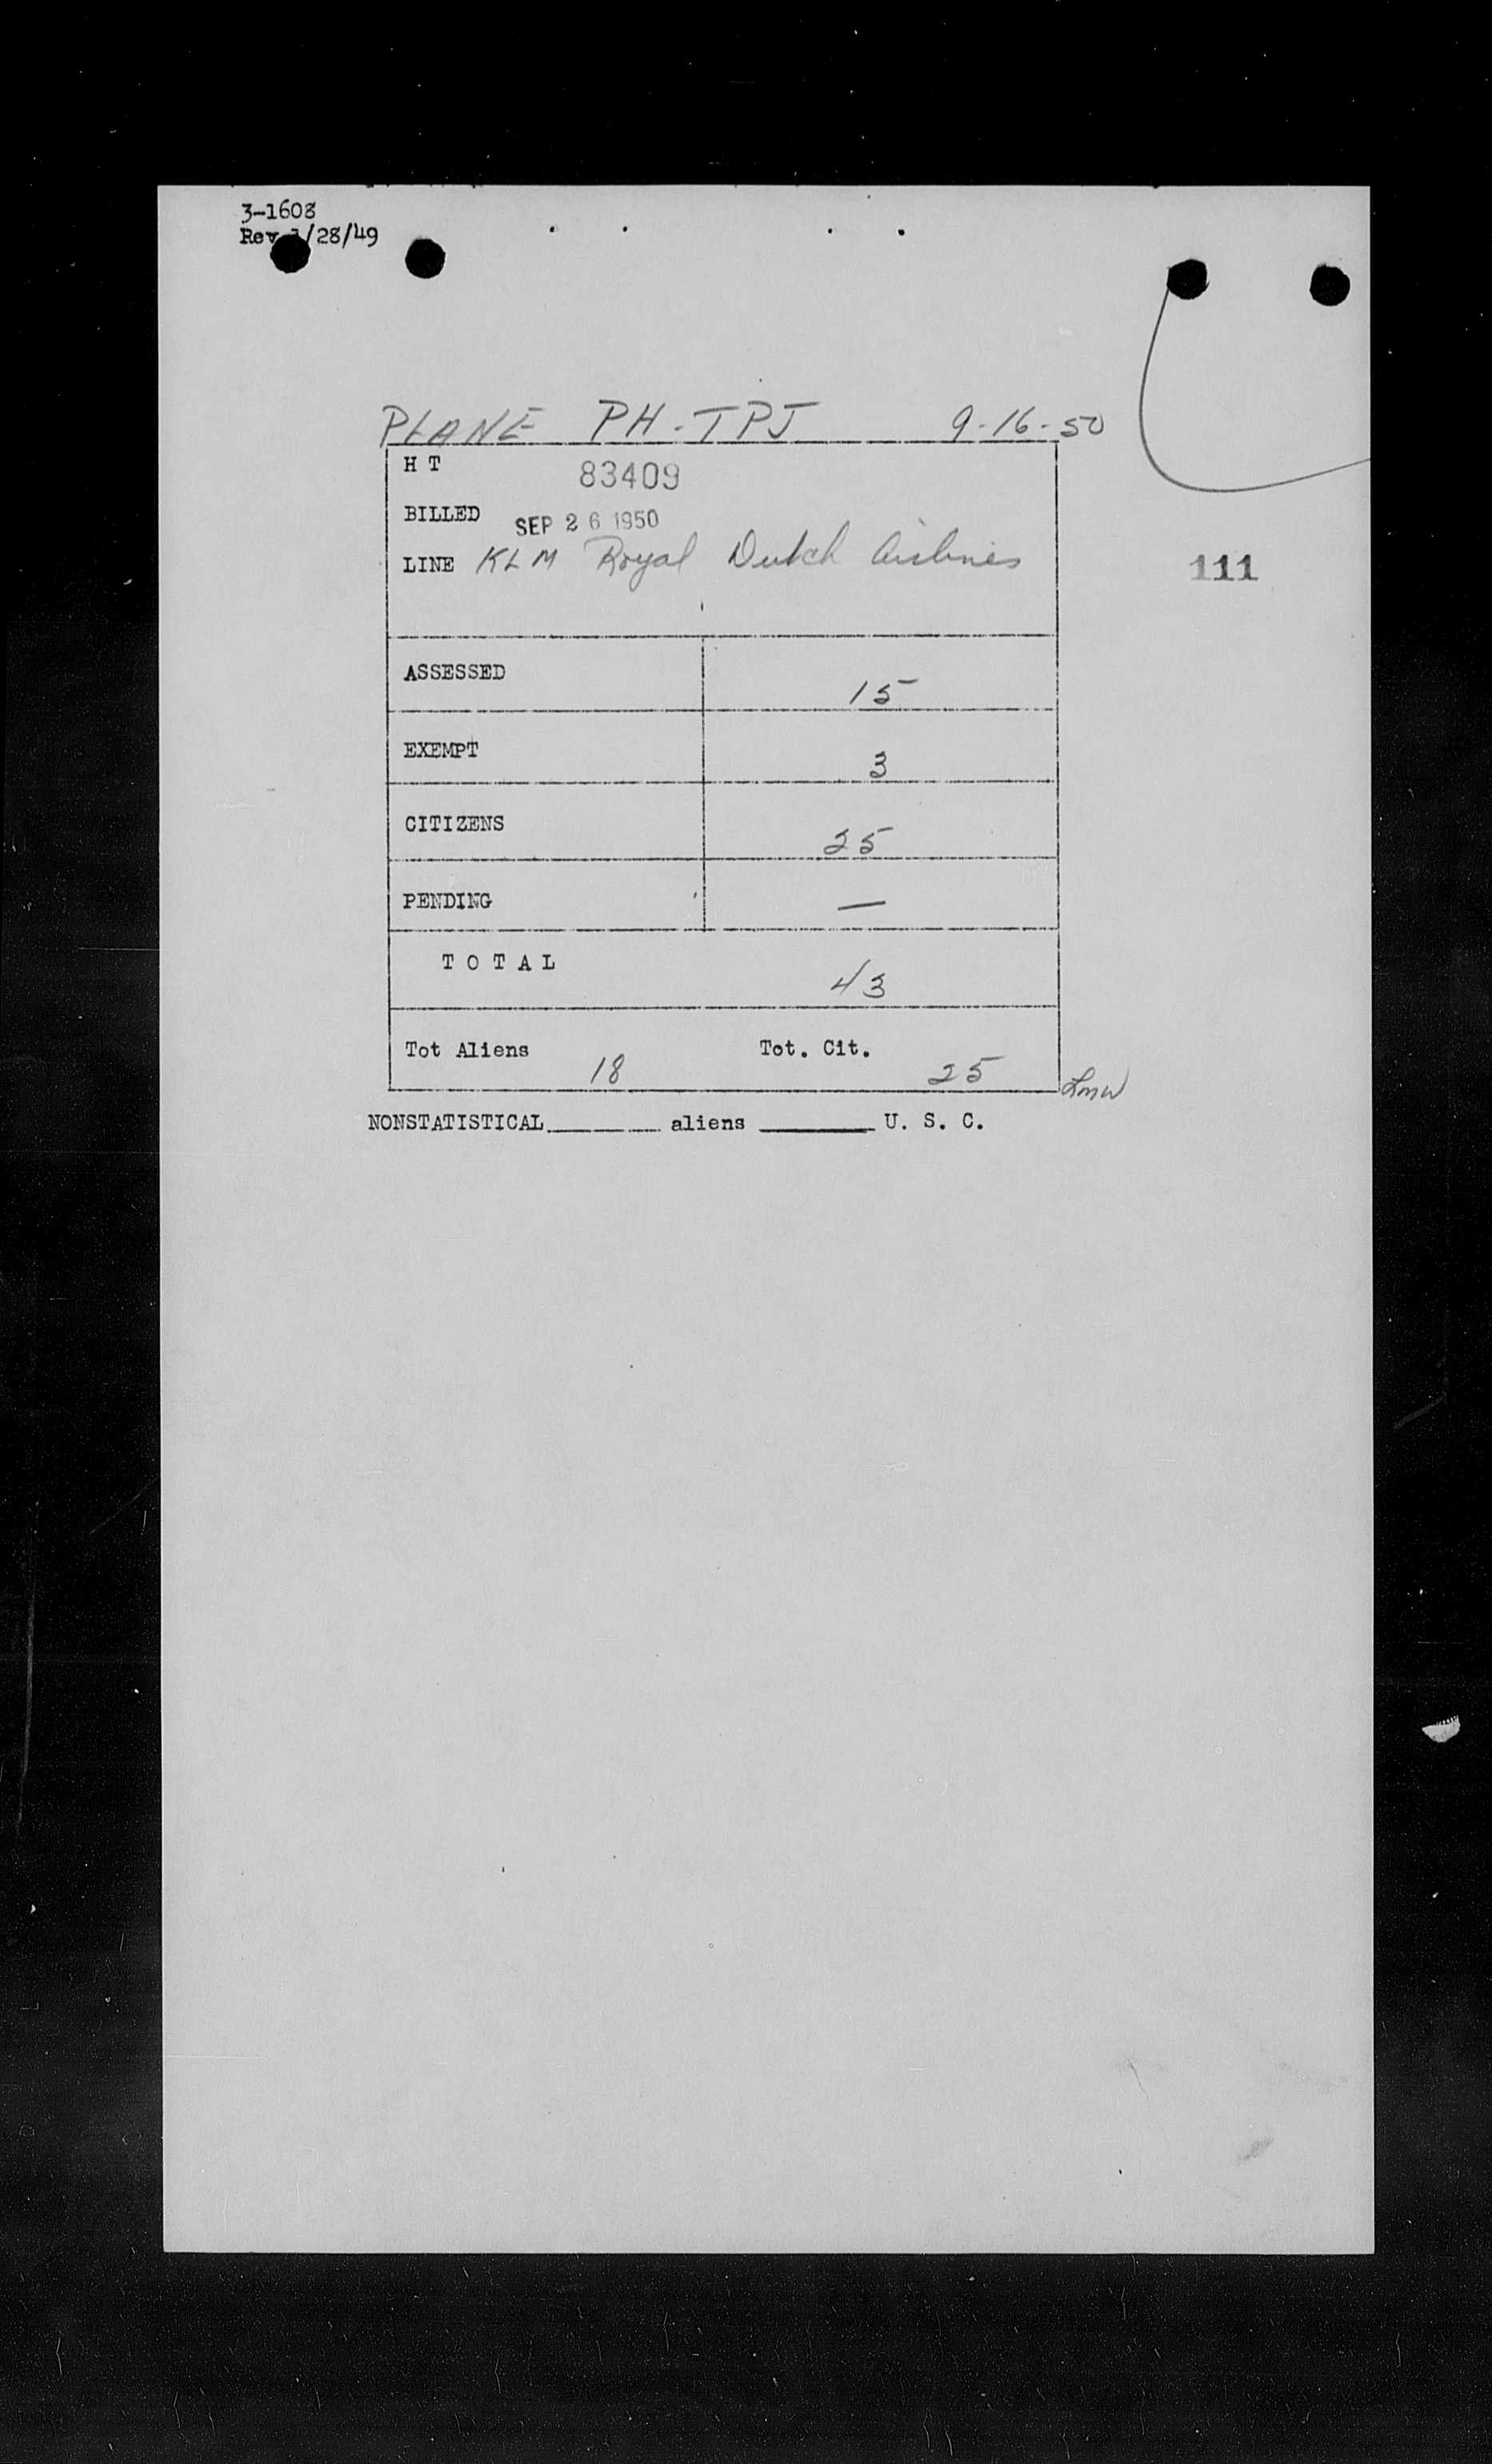 3-1608
Rev /28/49
PLANE PH-TPJ 9-16-50
H T 83409
BILLED SEP 26 1950
LINE KLM Royal Dutch Airlines
111
ASSESSED 15
EXEMPT 3
CITIZENS 25
PENDING —
TOTAL 43
Tot Aliens 18 Tot. Cit. 25
Lmw
NONSTATISTICAL______ aliens ______ U. S. C.